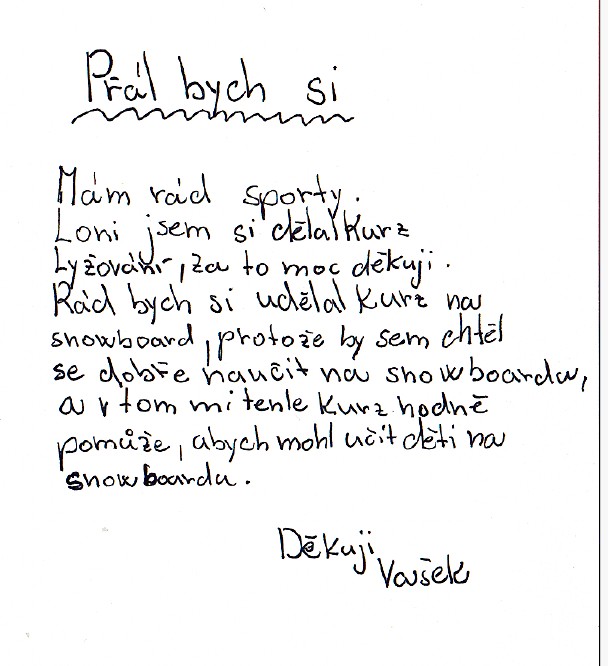 Přál bych si
Mám rád sporty.
Loni jsem si dělal kurz
Lyžování, za to moc děkuji.
Rád bych si udělal kurz na
snowboard, protože by sem chtěl
se dobře naučit na snowboardu,
a v tom mi tenle kurz hodně
pomůže, abych mohl učit děti na
snowboardu.
Děkuji
Vašek